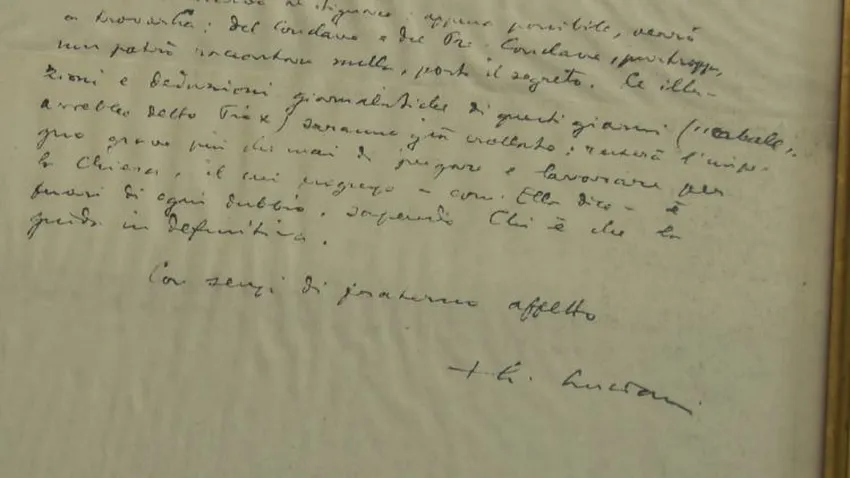 appena possibile, verrò
a trovarla: del Conclave e del Pre-Conclave, purtroppo,
non potrò raccontare nulla, posto il segreto. Le illa-
zioni e deduzioni giornalistiche di questi giorni ("cabale",
avrebbe detto Pio X) saranno già crollate: resterà l'impe-
gno grave più che mai di pregare e lavorare per
la Chiesa, il cui ingresso - com' Ella dice - è
fuori di ogni dubbio, sapendo Chi è che la
guida in definitiva.
Con sensi di fraterno affetto
+ A. Luciani